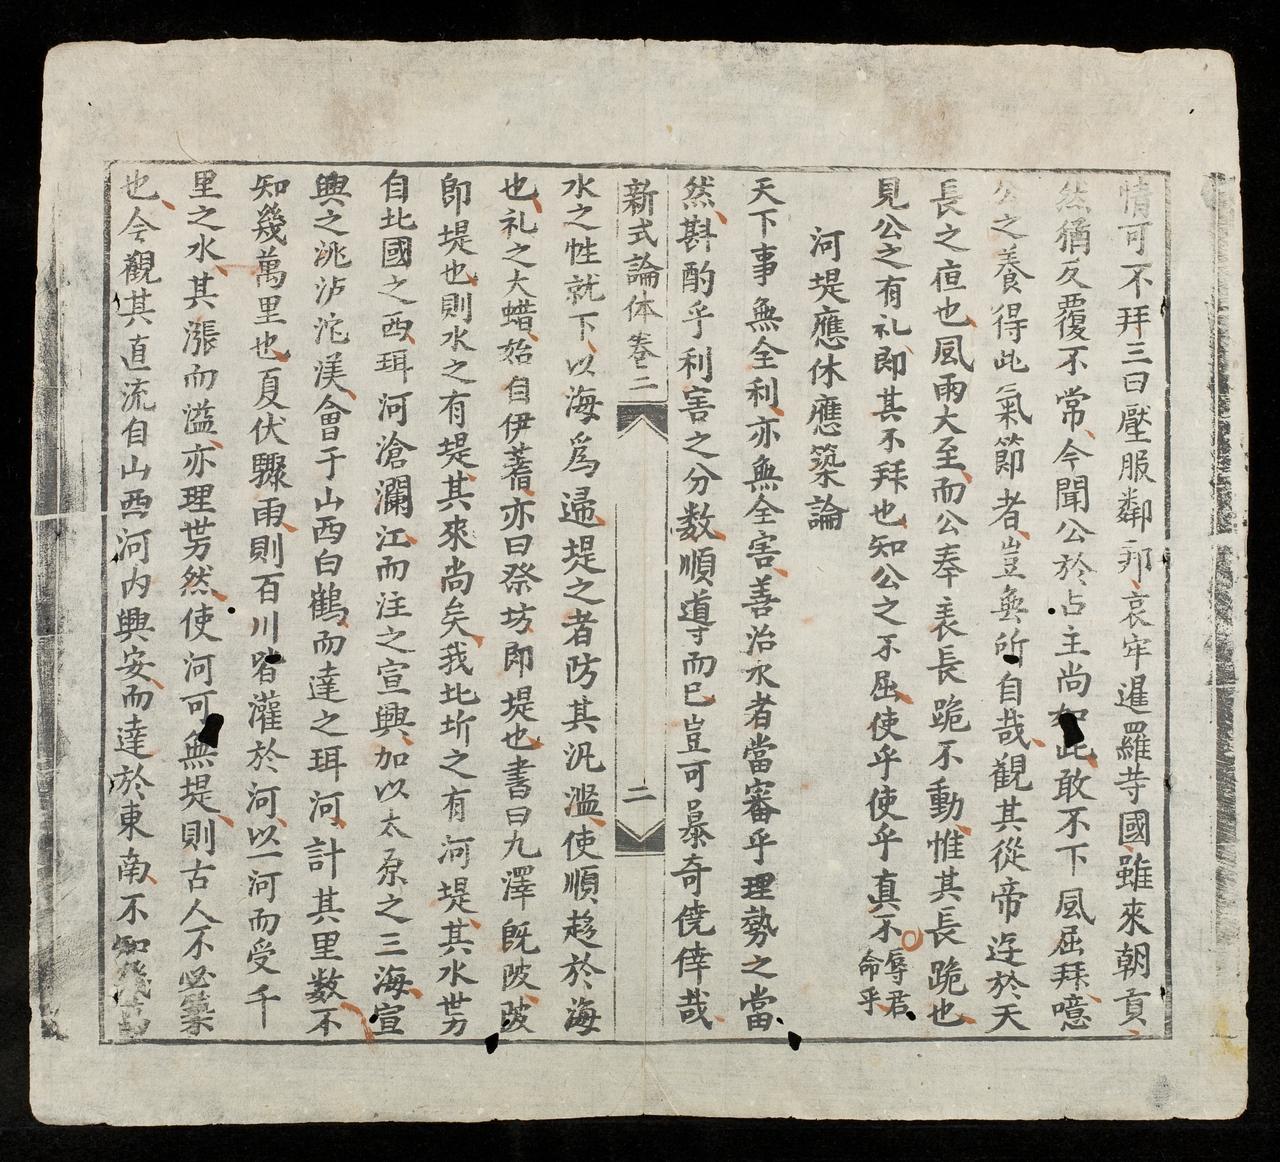 情可不拜三曰壓服鄰邦哀牢暹羅寺國雖來朝貢
然猶反覆不常今聞公於占主尚如此敢不下風屈拜噫
公之養得此氣節者豈無所自哉觀其從帝迕於天
長之亱也風雨大至而公奉表長跪不動惟其長跪也
見公之有礼即其不拜也知公之不屈使乎使乎真不辱君命乎
河堤應休應築論
天下事無全利亦無全害善治水者當審乎理勢之當
然斟酌乎利害之分数順導而已豈可暴奇僥倖哉
新式論体卷二
二
水之性就下以海爲歸堤之者防其汎濫使順趍於海
也礼之大蜡始自伊蓍亦曰祭坊即堤也書曰九澤既陂陂
即堤也則水之有堤其來尚矣我北圻之有河堤其水势
自北國之西珥河滄瀾江而注之宣興加以太原之三海宣
興之洮泸沱渼會于山西白鶴而達之珥河計其里数不
知幾萬里也夏伏驟雨則百川皆灌於河以一河而受千
里之水其漲而溢亦理势然使河可無堤則古人不必築
也今觀其直流自山西河内興安而達於東南不知幾萬